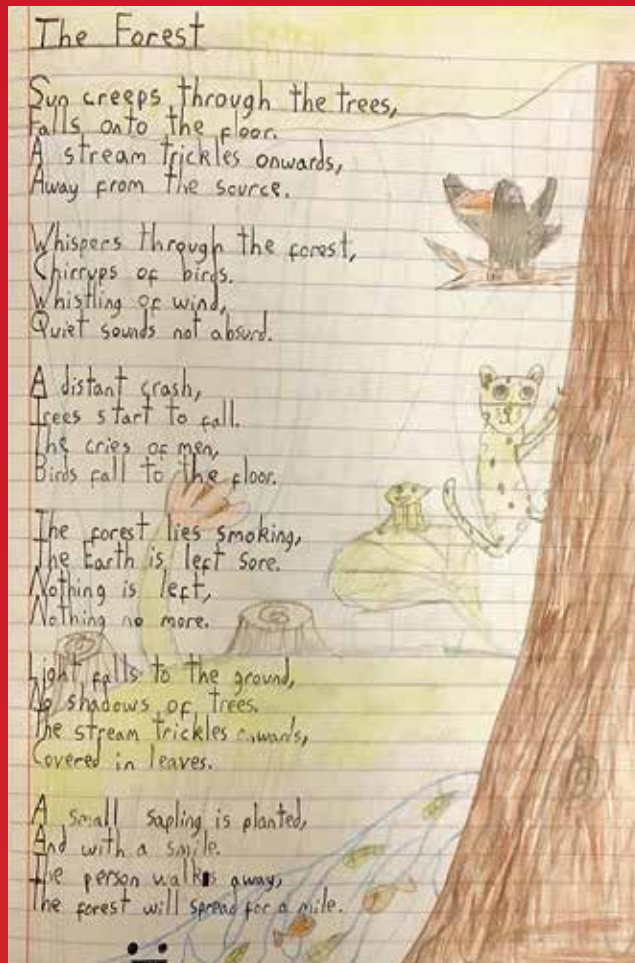 The Forest
Sun creeps through the trees,
Falls onto the floor.
A stream trickles onwards,
Away from the source.
Whispers through the forest,
Chirrups of birds.
Whistling of wind,
Quiet sounds not absurd.
A distant crash,
Trees start to fall.
The cries of men,
Birds fall to the floor.
The forest lies smoking,
The Earth is left sore.
Nothing is left,
Nothing no more.
Light falls to the ground,
No shadows of trees.
The stream trickles onwards,
Covered in leaves.
A small sapling is planted,
And with a smile.
The person walks away,
The forest will spread for a mile.